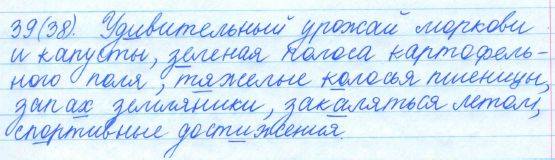 39(38). Удивительный урожай моркови
и капусты, зеленая полоса картофель-
ного поля, тяжелые колосья пшеницы,
запах земляники, закаляться летом,
спортивные достижения.